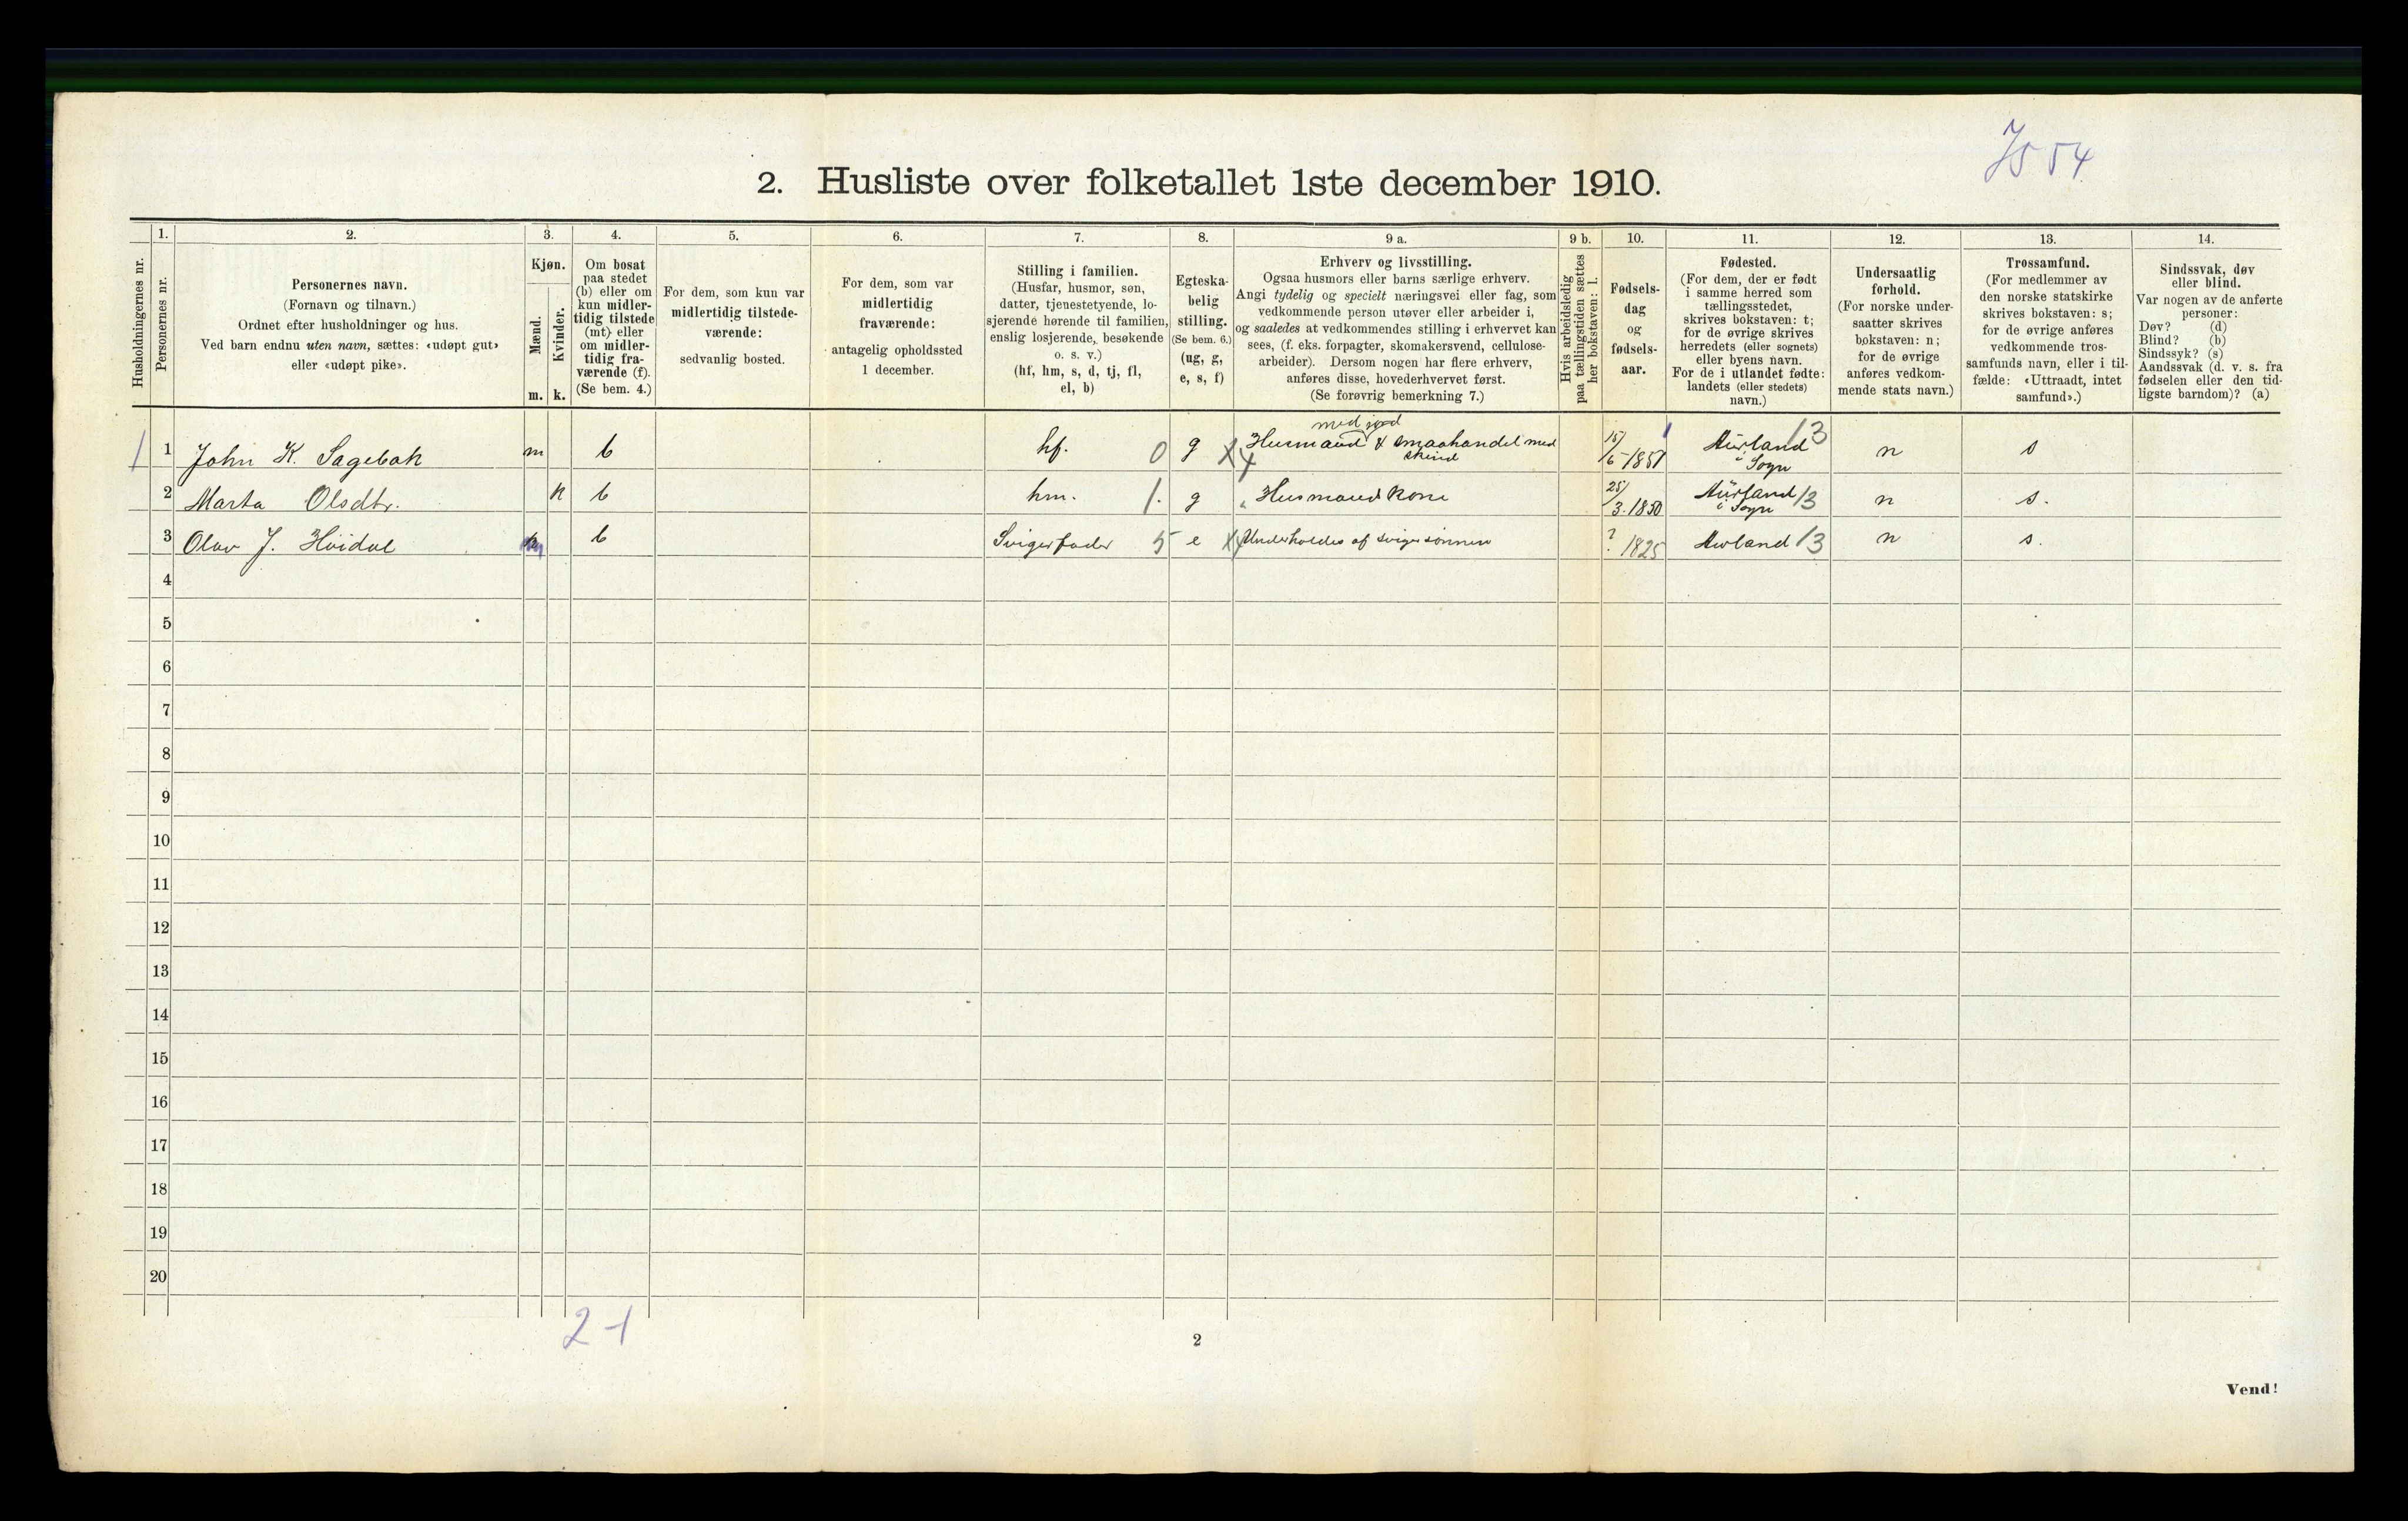 Js 54
2. Husliste over folketallet 1ste december 1910.
1. 2. 3. 4. 5. 6. 7. 8. 9 a. 9 b. 10. 11. 12. 13. 14.
Husholdningernes nr.
Personernes nr.
Personernes navn.
(Fornavn og tilnavn.)
Ordnet efter husholdninger og hus.
Ved barn endnu uten navn, sættes: «udøpt gut»
eller «udøpt pike».
Kjøn.
Mænd.
Kvinder.
m. k.
Om bosat
paa stedet
(b) eller om
kun midler-
tidig tilstede
(mt) eller
om midler-
tidig fra-
værende (f).
(Se bem. 4.)
For dem, som kun var
midlertidig tilstede-
værende:
sedvanlig bosted.
For dem, som var
midlertidig
fraværende:
antagelig opholdssted
1 december.
Stilling i familien.
(Husfar, husmor, søn,
datter, tjenestetyende, lo-
sjerende hørende til familien,
enslig losjerende, besøkende
o. s. v.)
(hf, hm, s, d, tj, fl,
el, b)
Egteska-
belig
stilling.
(Se bem. 6.)
(ug, g,
e, s, f)
Erhverv og livsstilling.
Ogsaa husmors eller barns særlige erhverv.
Angi tydelig og specielt næringsvei eller fag, som
vedkommende person utøver eller arbeider i,
og saaledes at vedkommendes stilling i erhvervet kan
sees, (f. eks. forpagter, skomakersvend, cellulose-
arbeider). Dersom nogen har flere erhverv,
anføres disse, hovederhvervet først.
(Se forøvrig bemerkning 7.)
Hvis arbeidsledig
paa tællingstiden sættes
her bokstaven: l.
Fødsels-
dag
og
fødsels-
aar.
Fødested.
(For dem, der er født
i samme herred som
tællingsstedet,
skrives bokstaven: t;
for de øvrige skrives
herredets (eller sognets)
eller byens navn.
For de i utlandet fødte:
landets (eller stedets)
navn.)
Undersaatlig
forhold.
(For norske under-
saatter skrives
bokstaven: n;
for de øvrige
anføres vedkom-
mende stats navn.)
Trossamfund.
(For medlemmer av
den norske statskirke
skrives bokstaven: s;
for de øvrige anføres
vedkommende tros-
samfunds navn, eller i til-
fælde: «Uttraadt, intet
samfund».)
Sindssvak, døv
eller blind.
Var nogen av de anførte
personer:
Døv? (d)
Blind? (b)
Sindssyk? (s)
Aandssvak (d. v. s. fra
fødselen eller den tid-
ligste barndom)? (a)
med jord
1 1 John K. Sagebak m b hf. 0 g X4 Husmand & smaahandel med 15/6-1851 Aurland 13 n s
skind i Sogn
2 Marta Olsdtr. k b hm. 1. g Husmands kone 25/3.1850 Aurland 13 n s.
i Sogn
3 Olav J. Höidal m b Svigerfader 5 e X4 Underholdes af svigersönnen ? 1825 Aurland 13 n s.
4
5
6
7
8
9
10
11
12
13
14
15
16
17
18
19
20
2-1
2
Vend!